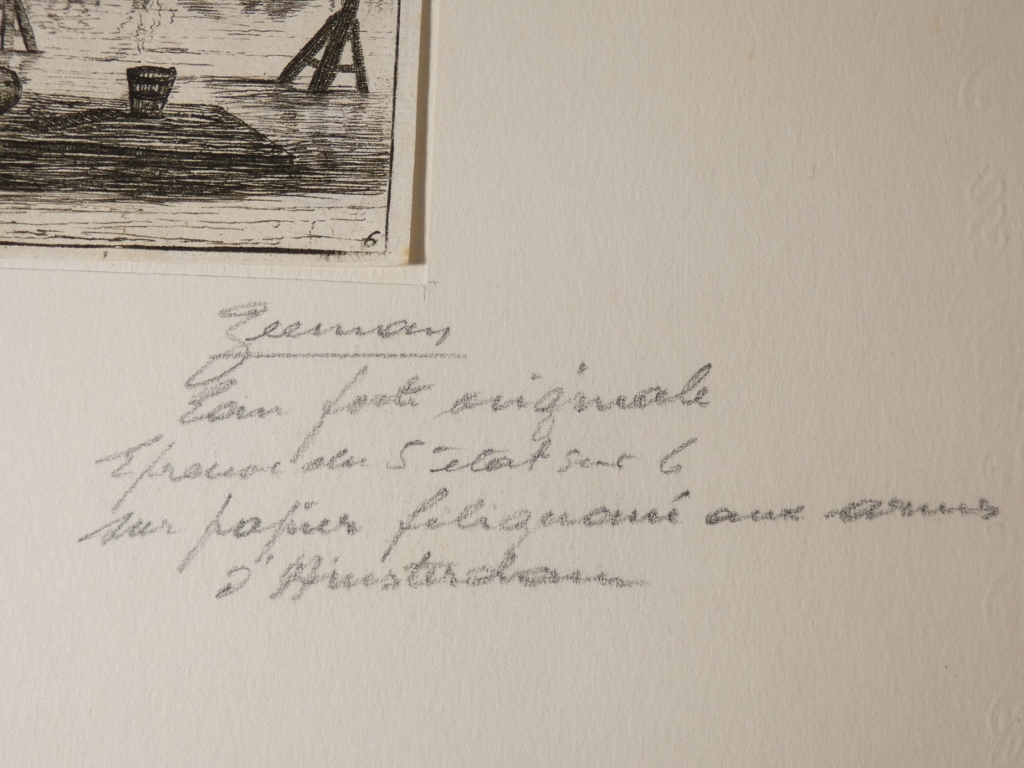 6
Zeeman
Eau forte originale
Epreuve du 5 état sur 6
sur papier filigrané aux armes
d'Amsterdam